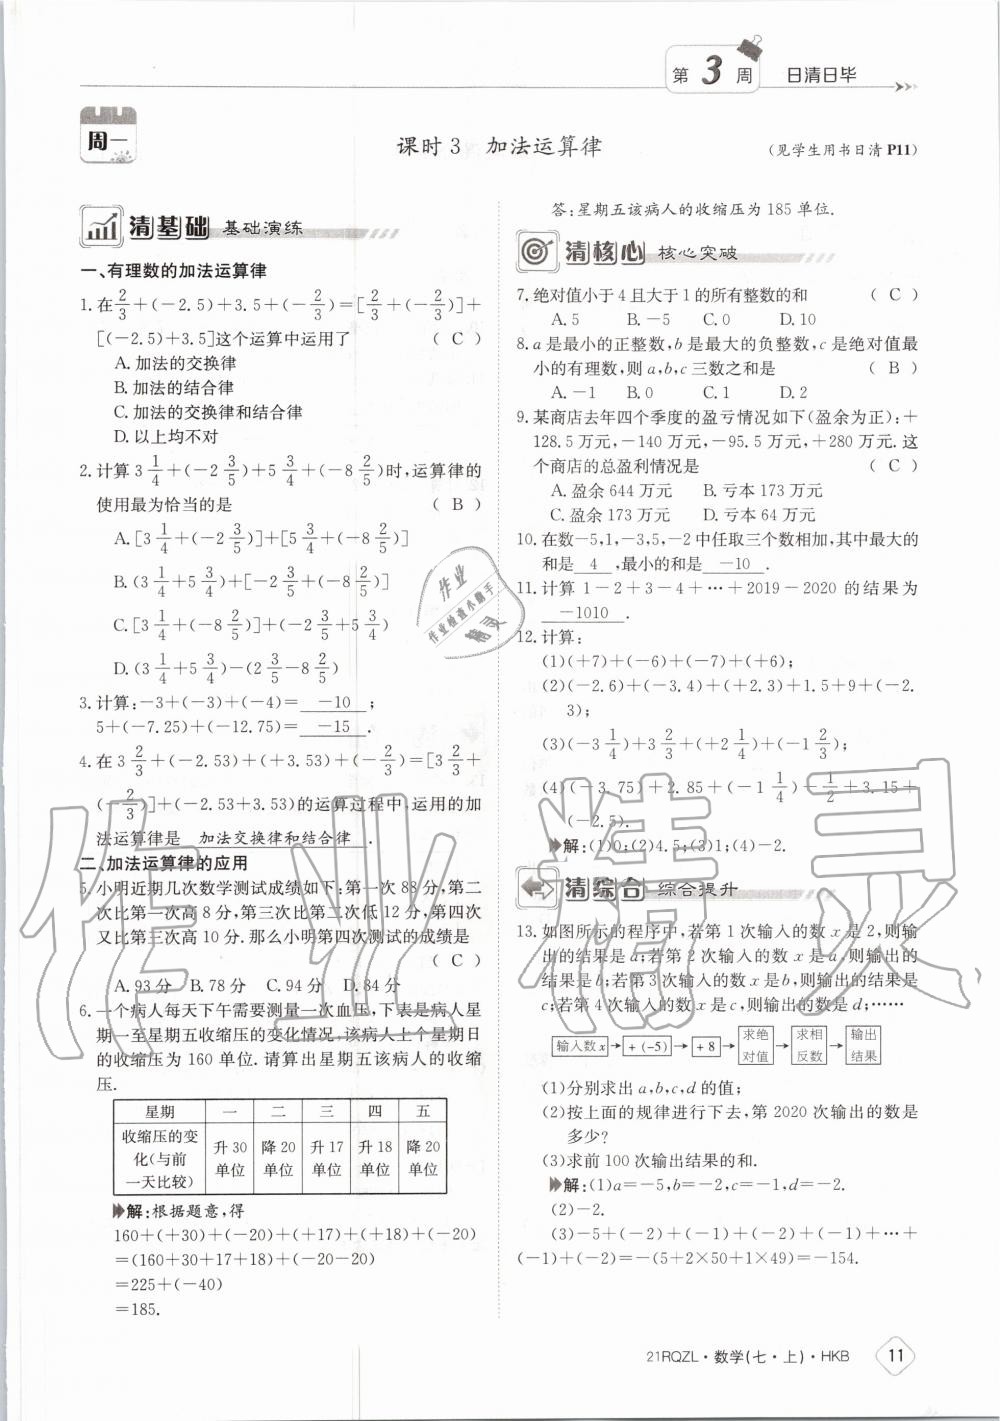 第3周 日清日毕
周一
课时3 加法运算律
(见学生用书日清P11)
清基础 基础演练
一、有理数的加法运算律
1.在2/3+(-2.5)+3.5+(-2/3)=[2/3+(-2/3)]+
[(-2.5)+3.5]这个运算中运用了 ( C )
A.加法的交换律
B.加法的结合律
C.加法的交换律和结合律
D.以上均不对
2.计算3 1/4+(-2 3/5)+5 3/4+(-8 2/5)时,运算律的
使用最为恰当的是 ( B )
A.[3 1/4+(-2 3/5)]+[5 3/4+(-8 2/5)]
B.(3 1/4+5 3/4)+[-2 3/5+(-8 2/5)]
C.[3 1/4+(-8 2/5)]+(-2 3/5+5 3/4)
D.(3 1/4+5 3/4)-(2 3/5-8 2/5)
3.计算:-3+(-3)+(-4)= -10 ;
5+(-7.25)+(-12.75)= -15 .
4.在3 2/3+(-2.53)+(+3.53)+(-2/3)=[3 2/3+
(-2/3)]+(-2.53+3.53)的运算过程中,运用的加
法运算律是 加法交换律和结合律 .
二、加法运算律的应用
5.小明近期几次数学测试成绩如下:第一次88分,第二
次比第一次高8分,第三次比第二次低12分,第四次
又比第三次高10分.那么小明第四次测试的成绩是
( C )
A.93分 B.78分 C.94分 D.84分
6.一个病人每天下午需要测量一次血压,下表是病人星
期一至星期五收缩压的变化情况,该病人上个星期日
的收缩压为160单位.请算出星期五该病人的收缩
压.
星期 一 二 三 四 五
收缩压的变化(与前一天比较) 升30单位 降20单位 升17单位 升18单位 降20单位
解:根据题意,得
160+(+30)+(-20)+(+17)+(+18)+(-20)
=(160+30+17+18)+(-20-20)
=225+(-40)
=185.
答:星期五该病人的收缩压为185单位.
清核心 核心突破
7.绝对值小于4且大于1的所有整数的和 ( C )
A.5 B.-5 C.0 D.10
8.a是最小的正整数,b是最大的负整数,c是绝对值最
小的有理数,则a,b,c三数之和是 ( B )
A.-1 B.0 C.1 D.2
9.某商店去年四个季度的盈亏情况如下(盈余为正):+
128.5万元,-140万元,-95.5万元,+280万元.这
个商店的总盈利情况是 ( C )
A.盈余644万元 B.亏本173万元
C.盈余173万元 D.亏本64万元
10.在数-5,1,-3,5,-2中任取三个数相加,其中最大的
和是 4 ,最小的和是 -10 .
11.计算1-2+3-4+…+2019-2020的结果为
-1010 .
12.计算:
(1)(+7)+(-6)+(-7)+(+6);
(2)(-2.6)+(-3.4)+(+2.3)+1.5+9+(-2.
3);
(3)(-3 1/4)+3 2/3+(+2 1/4)+(-1 2/3);
(4)(-3.75)+2.85+(-1 1/4)+1/2+3.15+
(-2.5).
解:(1)0;(2)4.5;(3)1;(4)-2.
清综合 综合提升
13.如图所示的程序中,若第1次输入的数x是2,则输
出的结果是a;若第2次输入的数x是a,则输出的
结果是b;若第3次输入的数x是b,则输出的结果是
c;若第4次输入的数x是c,则输出的数是d;……
输入数x→+(-5)→+8→求绝对值→求相反数→输出结果
(1)分别求出a,b,c,d的值;
(2)按上面的规律进行下去,第2020次输出的数是
多少?
(3)求前100次输出结果的和.
解:(1)a=-5,b=-2,c=-1,d=-2.
(2)-2.
(3)-5+(-2)+(-1)+(-2)+(-1)+…+
(-1)+(-2)=-(5+2×50+1×49)=-154.
作业
作业检查小助手
精灵
作业精灵
21RQZL·数学(七·上)·HKB 11